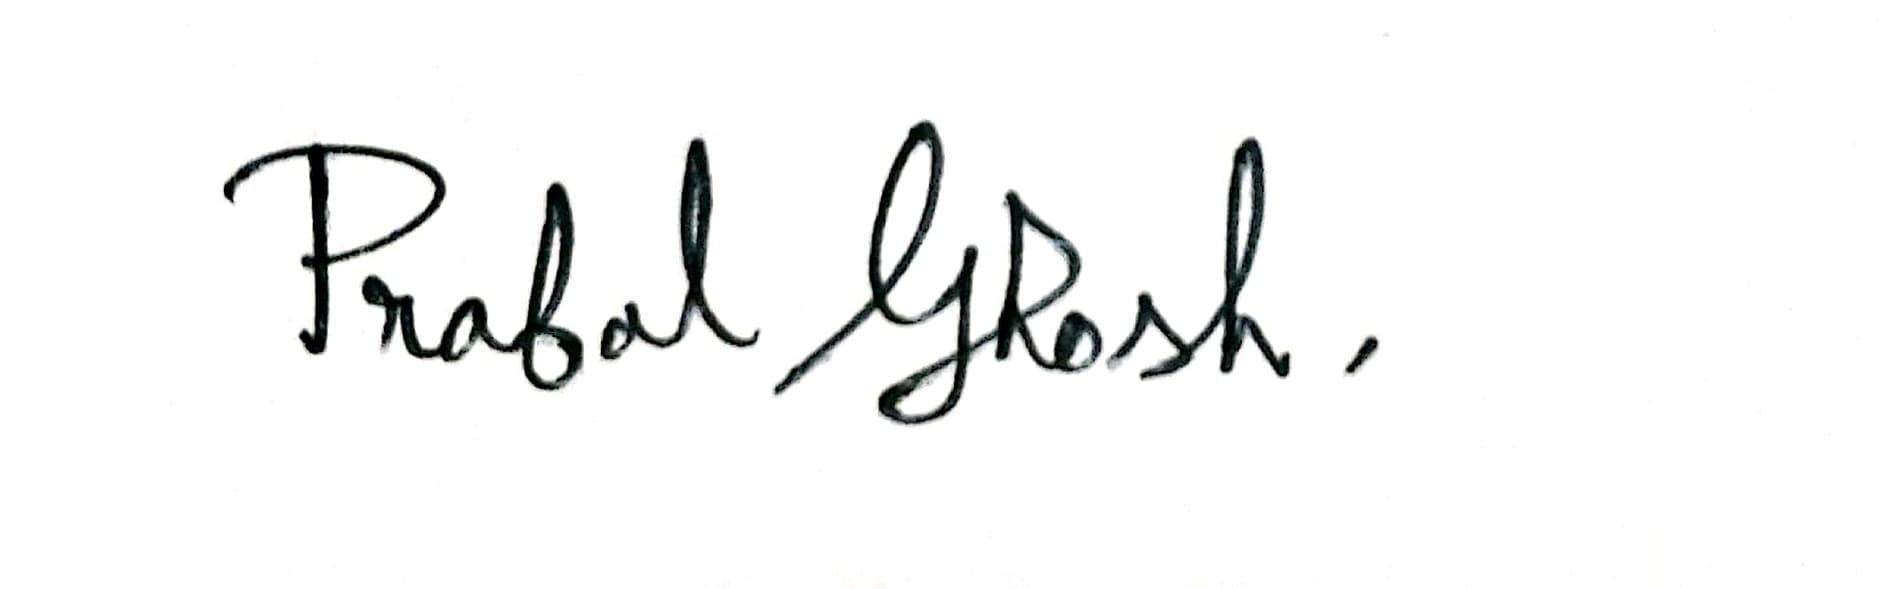 Prabal Ghosh.